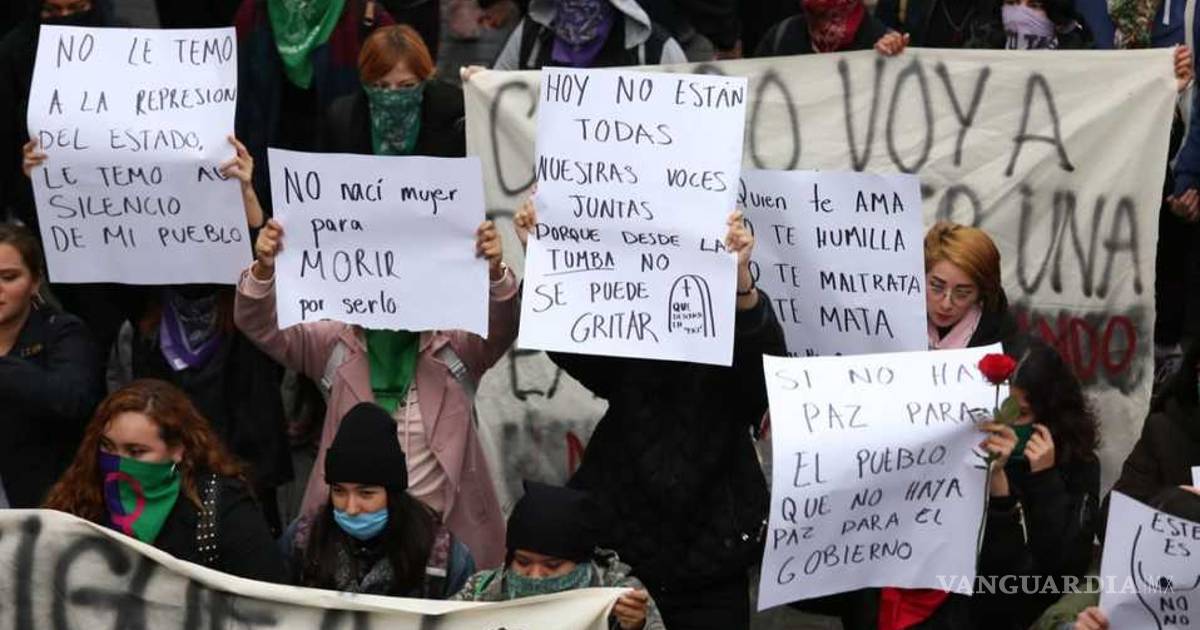 NO LE TEMO
A LA REPRESION
DEL ESTADO,
LE TEMO AL
SILENCIO
DE MI PUEBLO
NO nací mujer
para
MORIR
por serlo
HOY NO ESTÁN
TODAS
NUESTRAS VOCES
JUNTAS
PORQUE DESDE LA
TUMBA NO
SE PUEDE
GRITAR
QUE
PAZ
Quien te AMA
TE HUMILLA
TE MALTRATA
TE MATA
VOY A
UNA
SI NO HAY
PAZ PARA
EL PUEBLO
QUE NO HAYA
PAZ PARA EL
GOBIERNO
ESTE
ES
NO
NO
VANGUARDIA MX